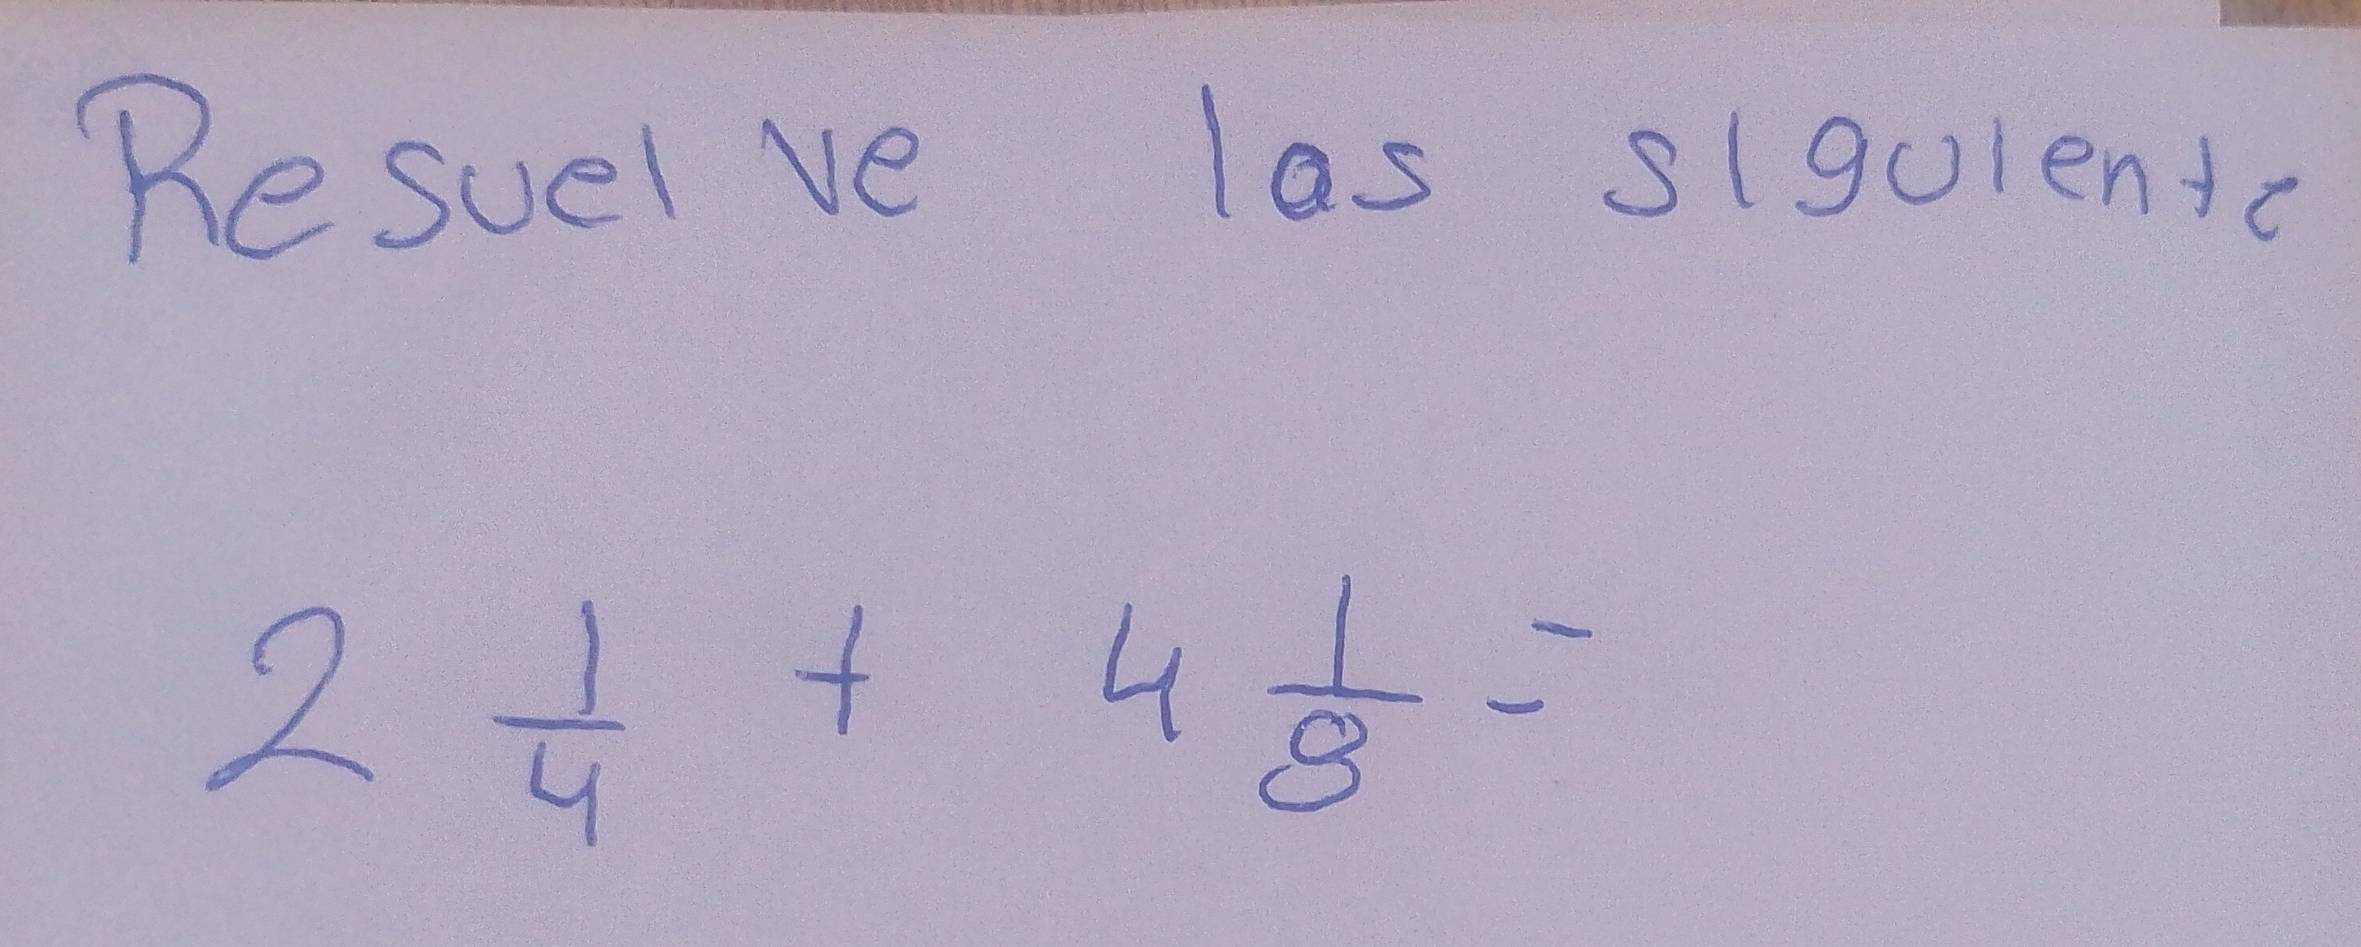 Resuelve las siguiente
2 1/4 + 4 1/8 =